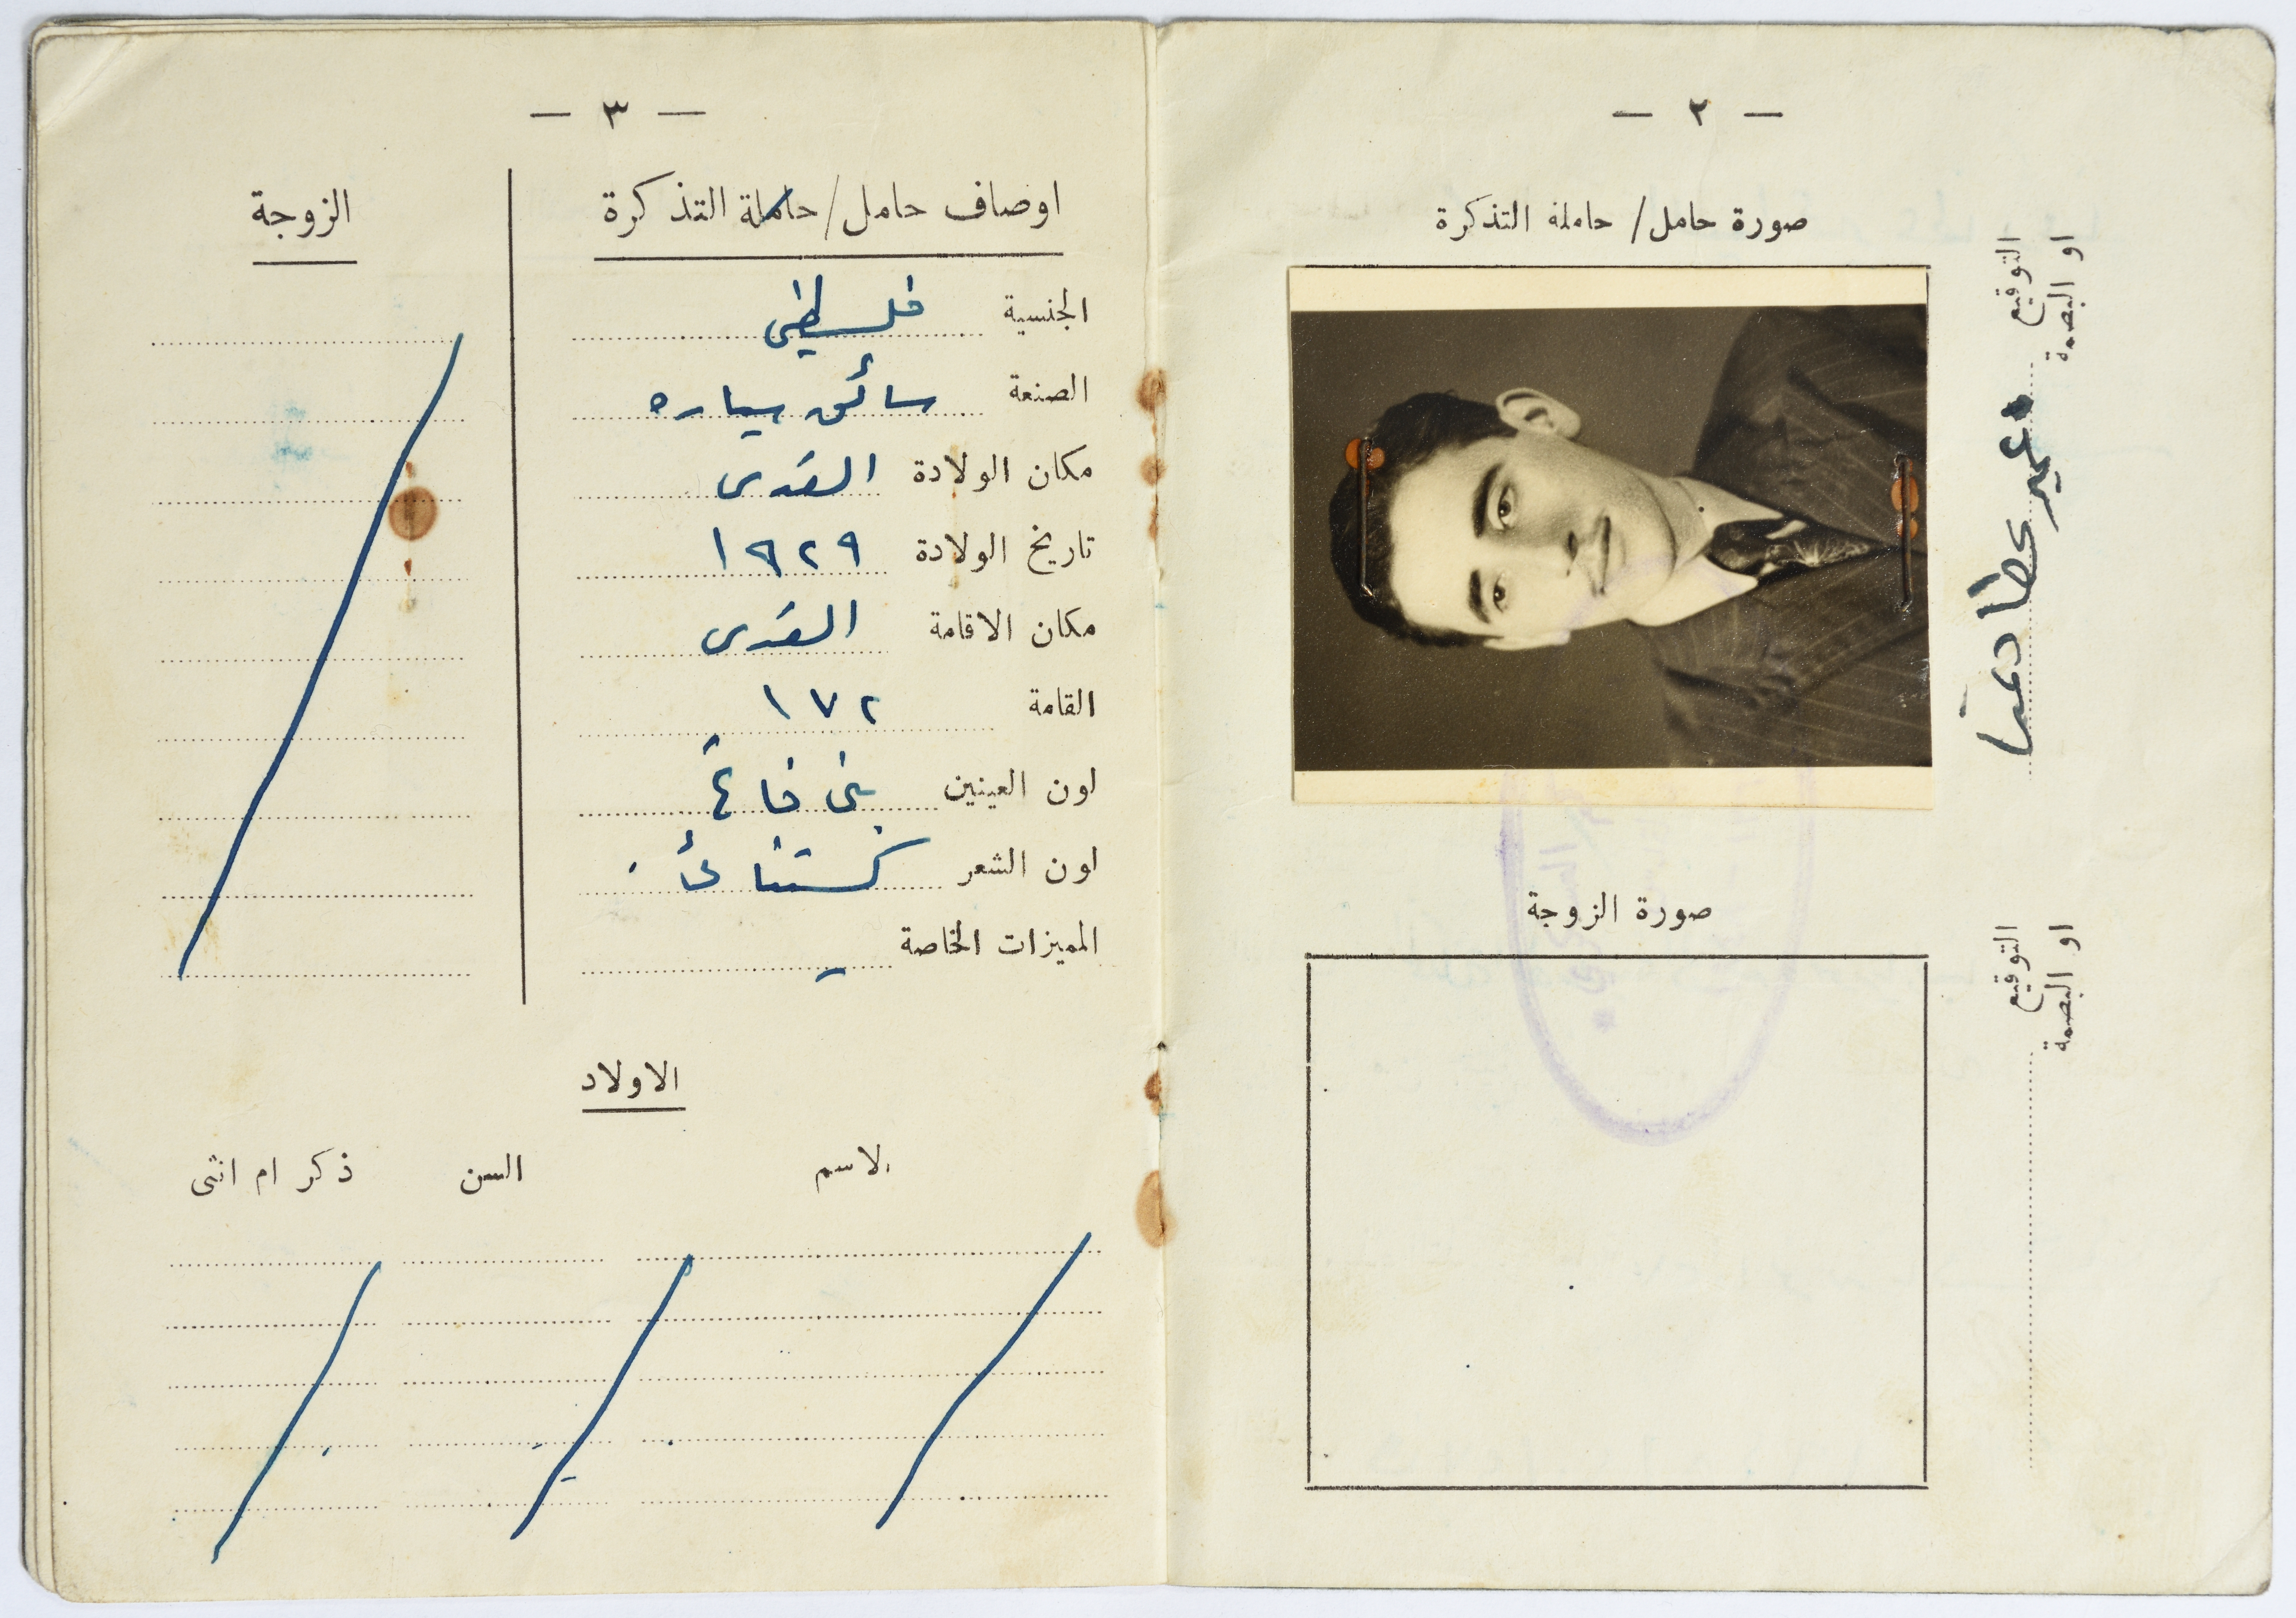 — ٢ —
صورة حامل / حاملة التذكرة
التوقيع
او البصمة
صورة الزوجة
التوقيع
او البصمة
— ٣ —
اوصاف حامل / حاملة التذكرة
الجنسية فلسطيني
الصنعة سائق سياره
مكان الولادة القدس
تاريخ الولادة ١٩٢٩
مكان الاقامة القدس
القامة ١٧٢
لون العينين بني فاتح
لون الشعر كستنائي
المميزات الخاصة -
الزوجة
الاولاد
الاسم السن ذكر ام انثى